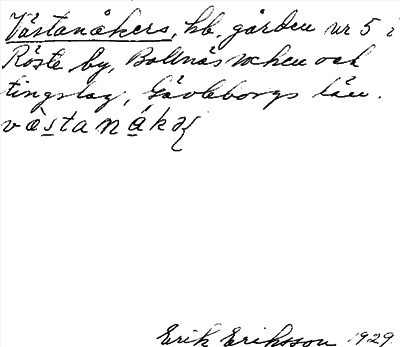 Västanåkers, hb. gården nr 5 i
Röste by, Bollnäs socken och
tingslag, Gävleborgs län.
västanåkə
Erik Eriksson 1929